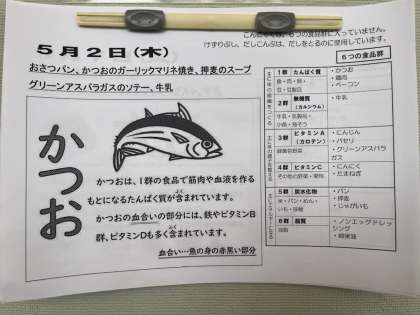 6つの食品群に入っていません。
けずりぶし、だしこんぶは、だしをとるのに使用しています。
5月2日(木)
おさつパン、かつおのガーリックマリネ焼き、押麦のスープ
グリーンアスパラガスのソテー、牛乳
かつお
かつおは、1群の食品で筋肉や血液を作る
もとになるたんぱく質が含まれています。
かつおの血合いの部分には、鉄やビタミンB
群、ビタミンDも多く含まれています。
血合い…魚の身の赤黒い部分
6つの食品群
1群 たんぱく質
魚・肉・卵・
豆・豆製品
・かつお
・鶏肉
・ベーコン
2群 無機質
(カルシウム)
牛乳・乳製品・
小魚・海そう
・牛乳
3群 ビタミンA
(カロテン)
緑黄色野菜
・にんじん
・パセリ
・グリーンアスパラ
ガス
4群 ビタミンC
その他の野菜・果物
・にんにく
・たまねぎ
5群 炭水化物
米・パン・めん・
いも・砂糖
・パン
・押麦
・じゃがいも
6群 脂質
油脂
・ノンエッグドレッ
シング
・綿実油